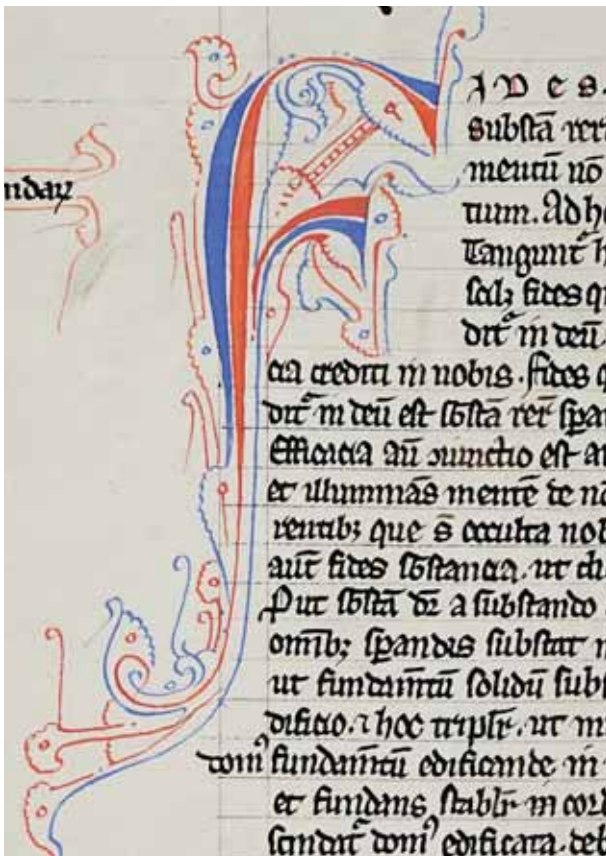 ndaꝝ
F IDES.
substā rer
mentū nō
tium. Ad h
Tangunt᷑ h
solꝫ fides q
dit᷑ in deū.
cia crediti in nobis. fides q
dit᷑ in deū est s̄bstā rer̄ sꝑa
Efficacia aū ꝯiunctio est a
et illuminās mentē de nō
rentibꝫ que s̄ occulta nob
aūt fides s̄bstancia. ut di
Put s̄bstā dr̄ a substando
omībꝫ sꝑandis substat
ut fundam̄tū solidū subs
dificio. ⁊ hoc triplr̄. ut
domꝰ fundam̄tū edificande in
et fundans stablr̄ in cord
domꝰ edificata. deb